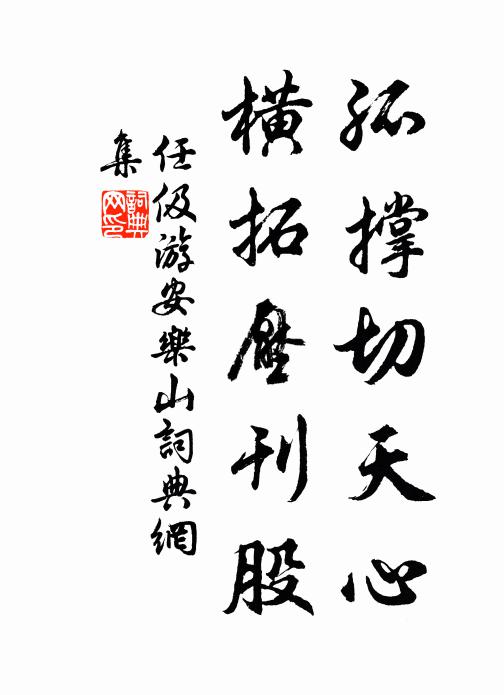 孤撐切天心
橫拓壓刊股
任伋游安樂山詞典網
集
詞典網印